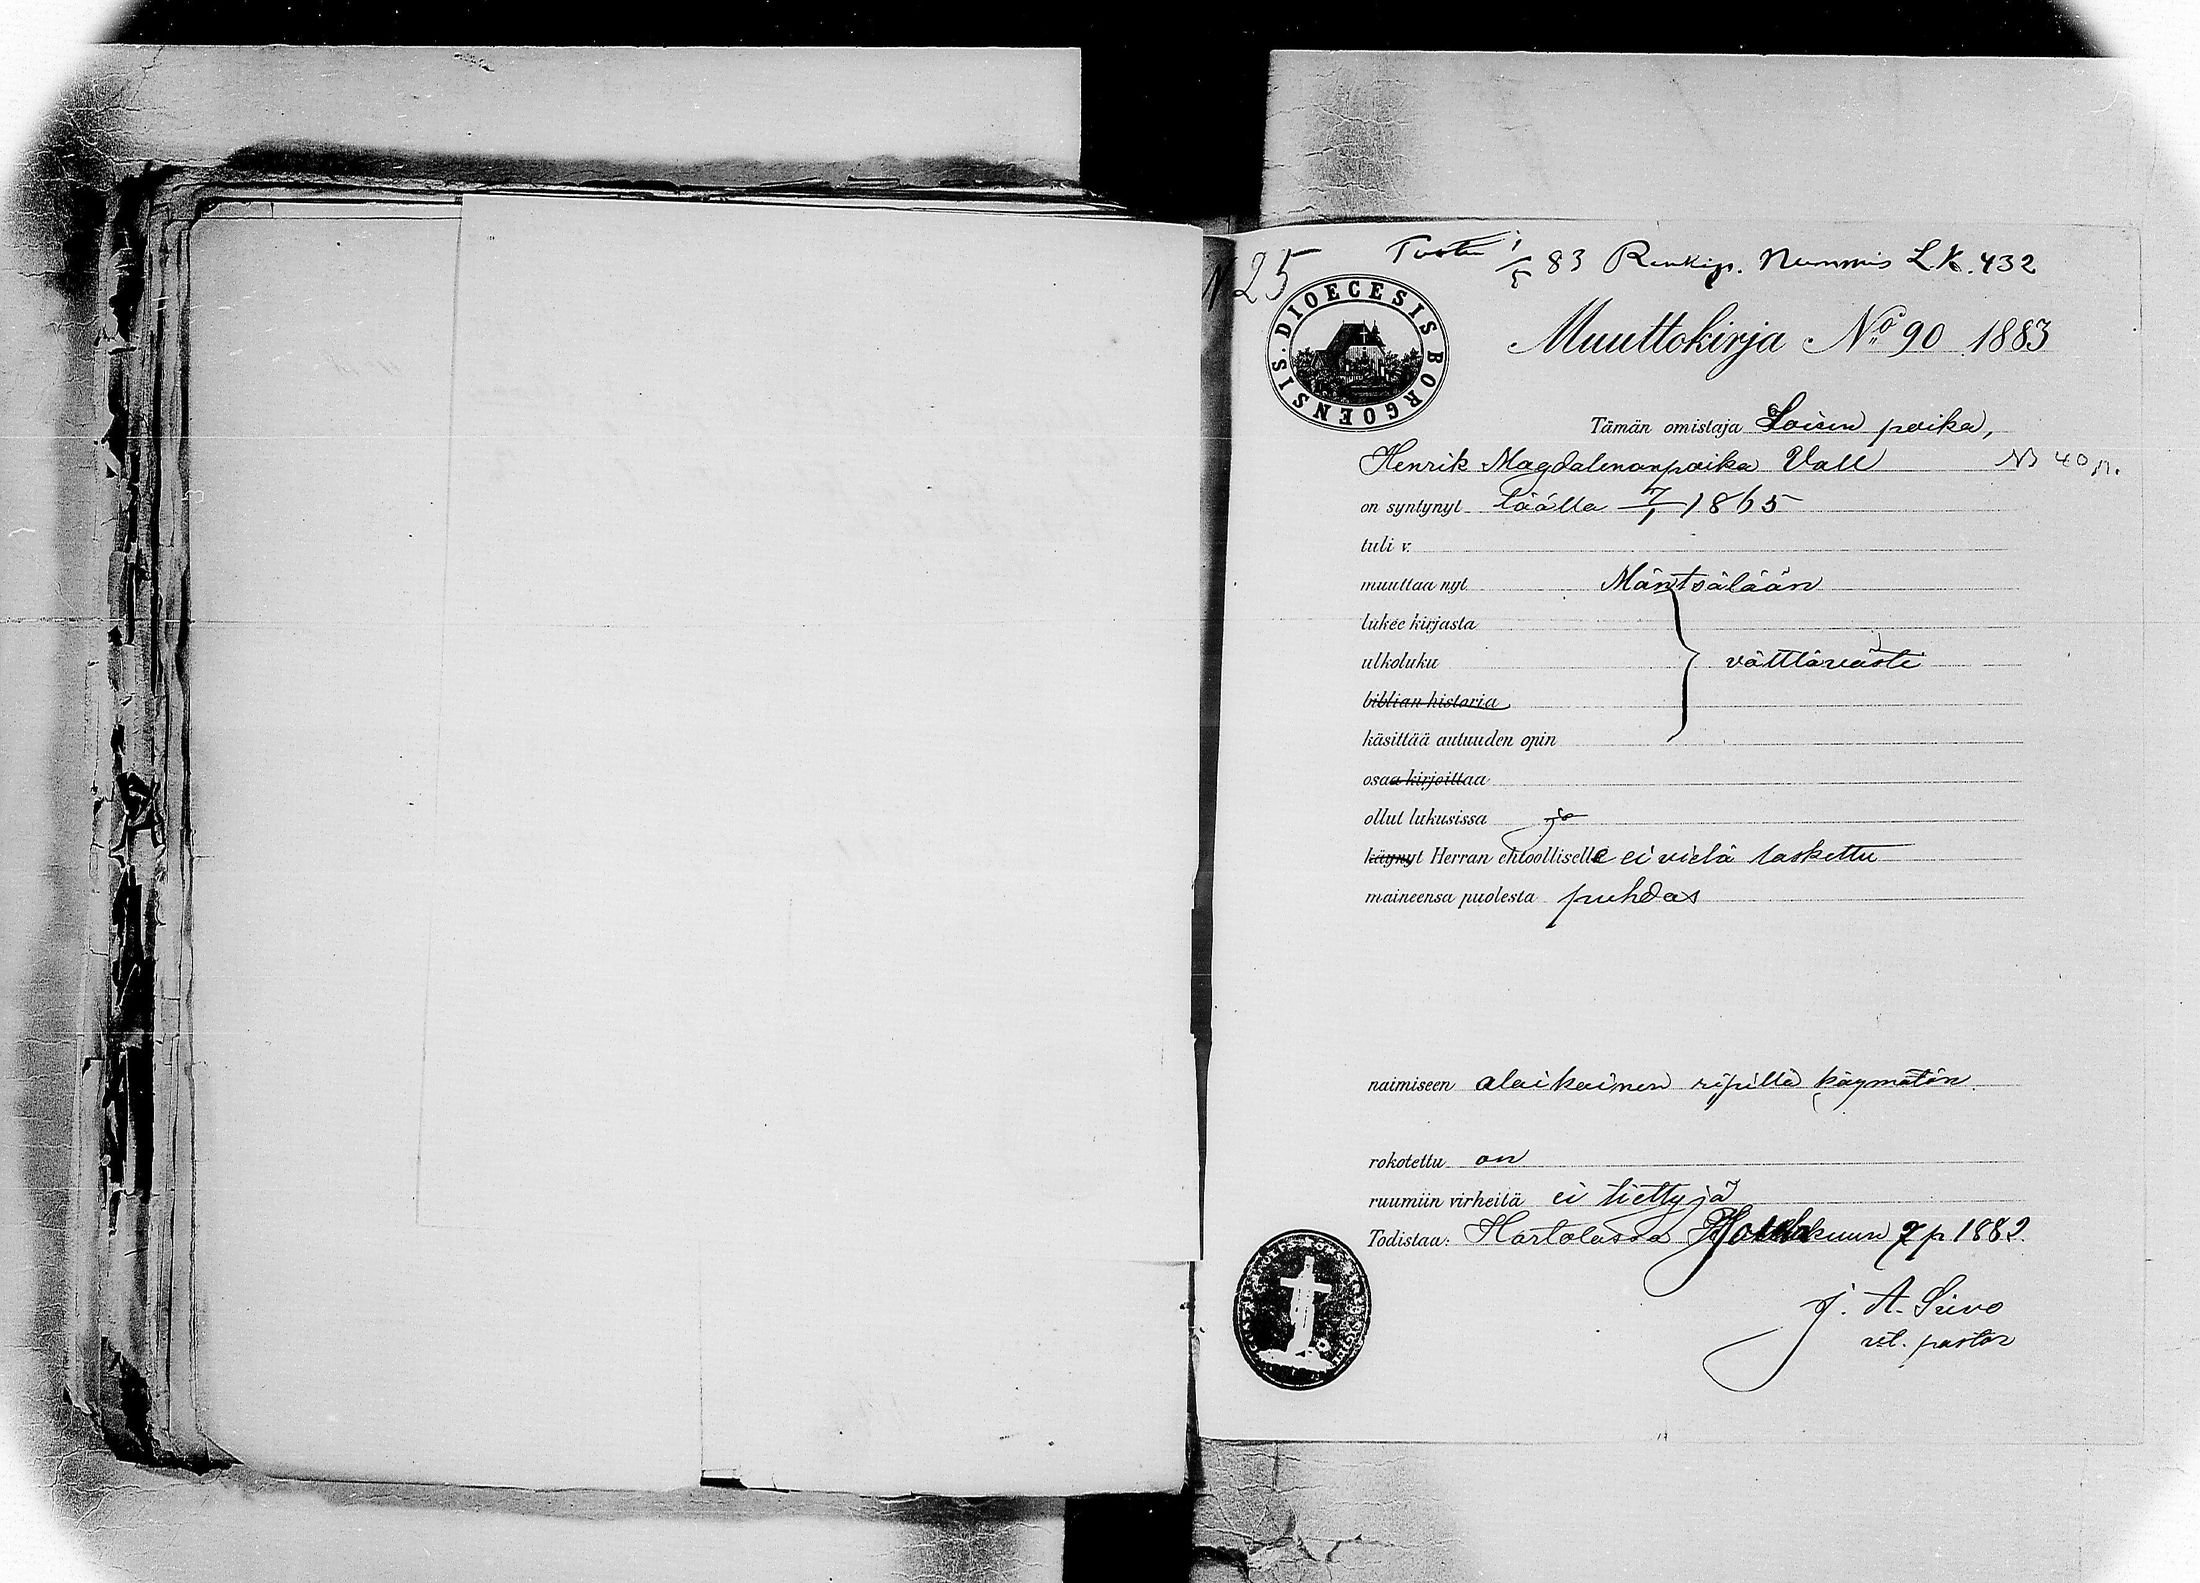 N 25
Tustu 1/5 83 Renkip. Nummis L.K. 432
DIOECESIS BORGOENSIS.
Muuttokirja No 90 1883
Tämän omistaja Loisen poika,
Henrik Magdalenanpoika Vall NB 40 p.
on syntynyt täällä 7/1 1865
tuli v.
muuttaa nyt Mäntsälään
lukee kirjasta
ulkoluku välttävästi
biblian historia
käsittää autuuden opin
osaa kirjoittaa
ollut lukusissa jo
käynyt Herran ehtoollisella ei vielä laskettu
maineensa puolesta puhdas
naimiseen alaikäinen ripillä käymätön
rokotettu on
ruumiin virheitä ei tiettyjä
Todistaa: Hartolassa kuun 7 p 1882.
J. A. Siivo
vt. pastor